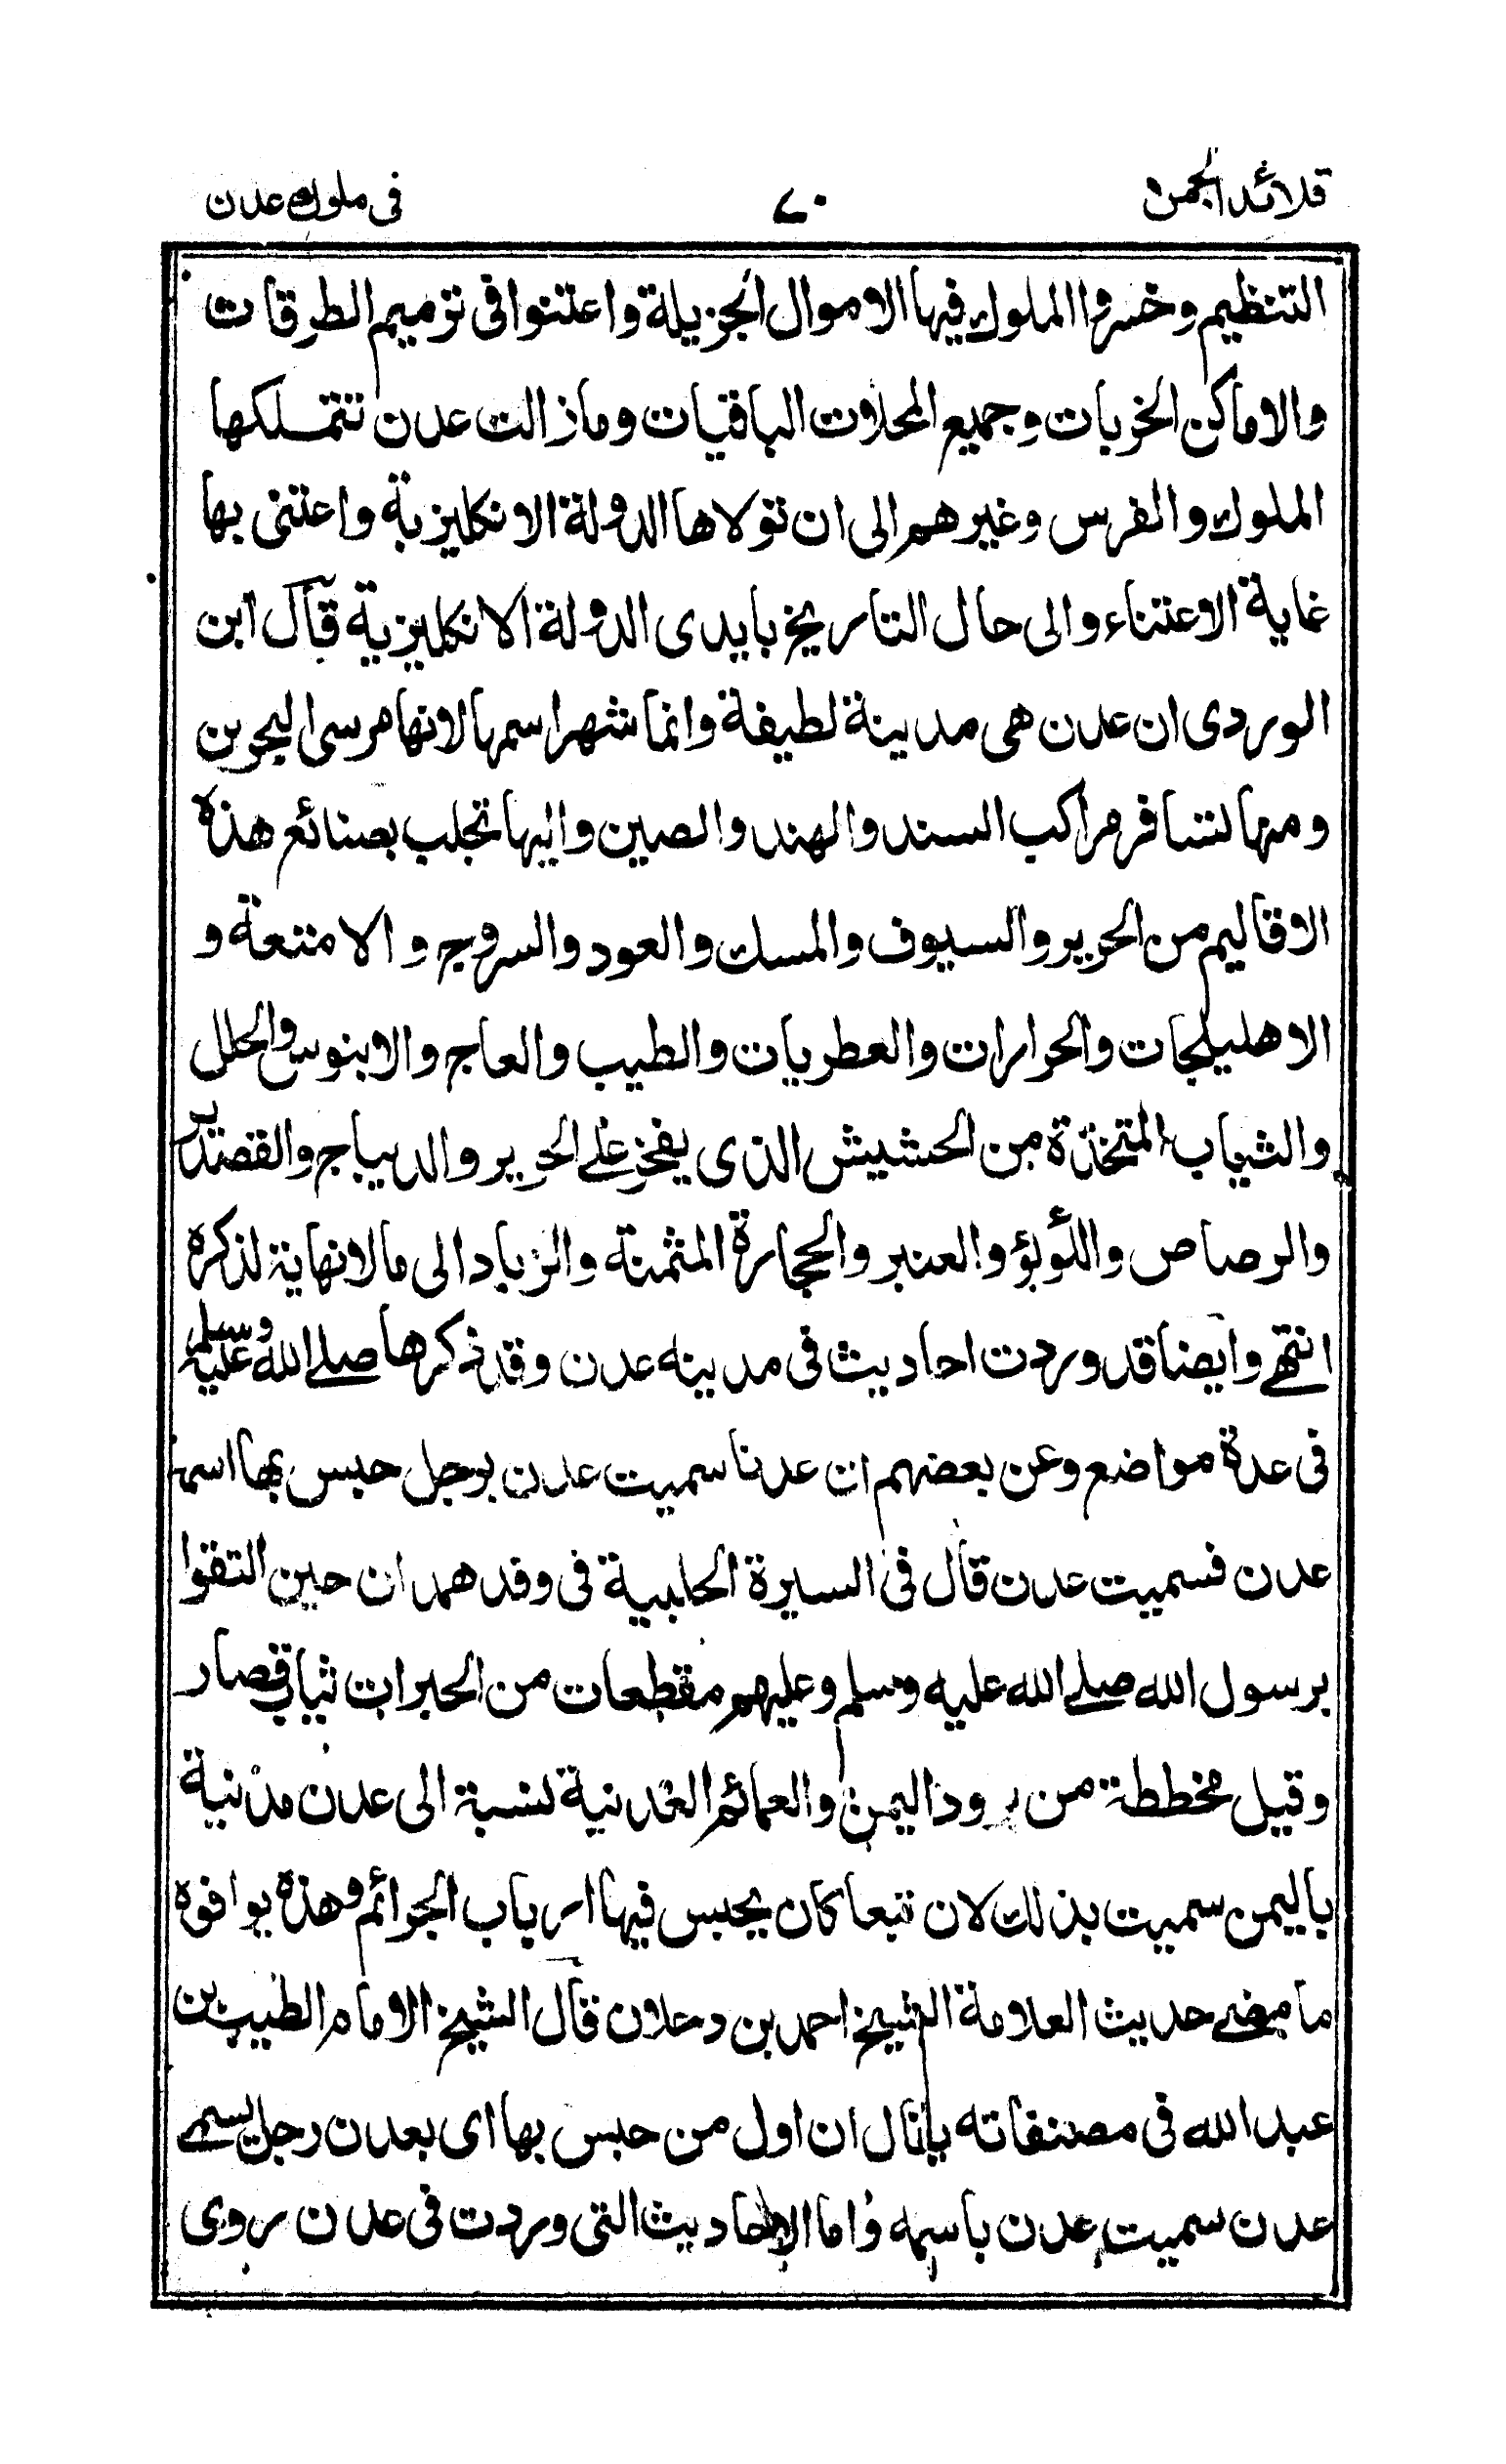 قلائد الجمن ٧٠ فى ملوك عدن
التنظيم وخسروا الملوك فيها الاموال الجزيلة واعتنوا فى ترميم الطرقات
والاماكن الخربات وجميع المحلات الباقيات وما زالت عدن تتملكها
الملوك والفرس وغيرهم الى ان تولاها الدولة الانكليزية واعتنى بها
غاية الاعتناء والى حال التاريخ بايدى الدولة الانكليزية قال ابن
الوردى ان عدن هى مدينة لطيفة وانما شهر اسمها لانها مرسى البحرين
ومنها تسافر مراكب السند والهند والصين واليها تجلب بصنائع هذه
الاقاليم من الحرير والسيوف والمسك والعود والسروج والامتعة و
الاهليلجات والحرارات والعطريات والطيب والعاج والابنوس والحلل
والثياب المتخذة من الحشيش الذى يفخر على الحرير والديباج والقصدير
والرصاص واللؤلؤ والعنبر والحجارة المثمنة والزباد الى مالا نهاية لذكره
انتهى وايضا قد وردت احاديث فى مدينه عدن وقد ذكرها صلى الله عليه وسلم
فى عدة مواضع وعن بعضهم ان عدنا سميت عدن برجل حبس بها اسمه
عدن فسميت عدن قال فى السيرة الحلبية فى وفد همدان حين التقوا
برسول الله صلى الله عليه وسلم وعليهم مقطعات من الحبرات ثياب قصار
وقيل مخططة من برود اليمن والعمائم العدنية نسبة الى عدن مدنية
باليمن سميت بذلك لان تبعا كان يحبس فيها ارباب الجرائم وهذه يوافوه
ما ميضى حديث العلامة الشيخ احمد بن دحلان قال الشيخ الامام الطيب بن
عبد الله فى مصنفاته ان اول من حبس بها اى بعدن رجل يسمى
عدن سميت عدن باسمه واما الاحاديث التى وردت فى عدن روى